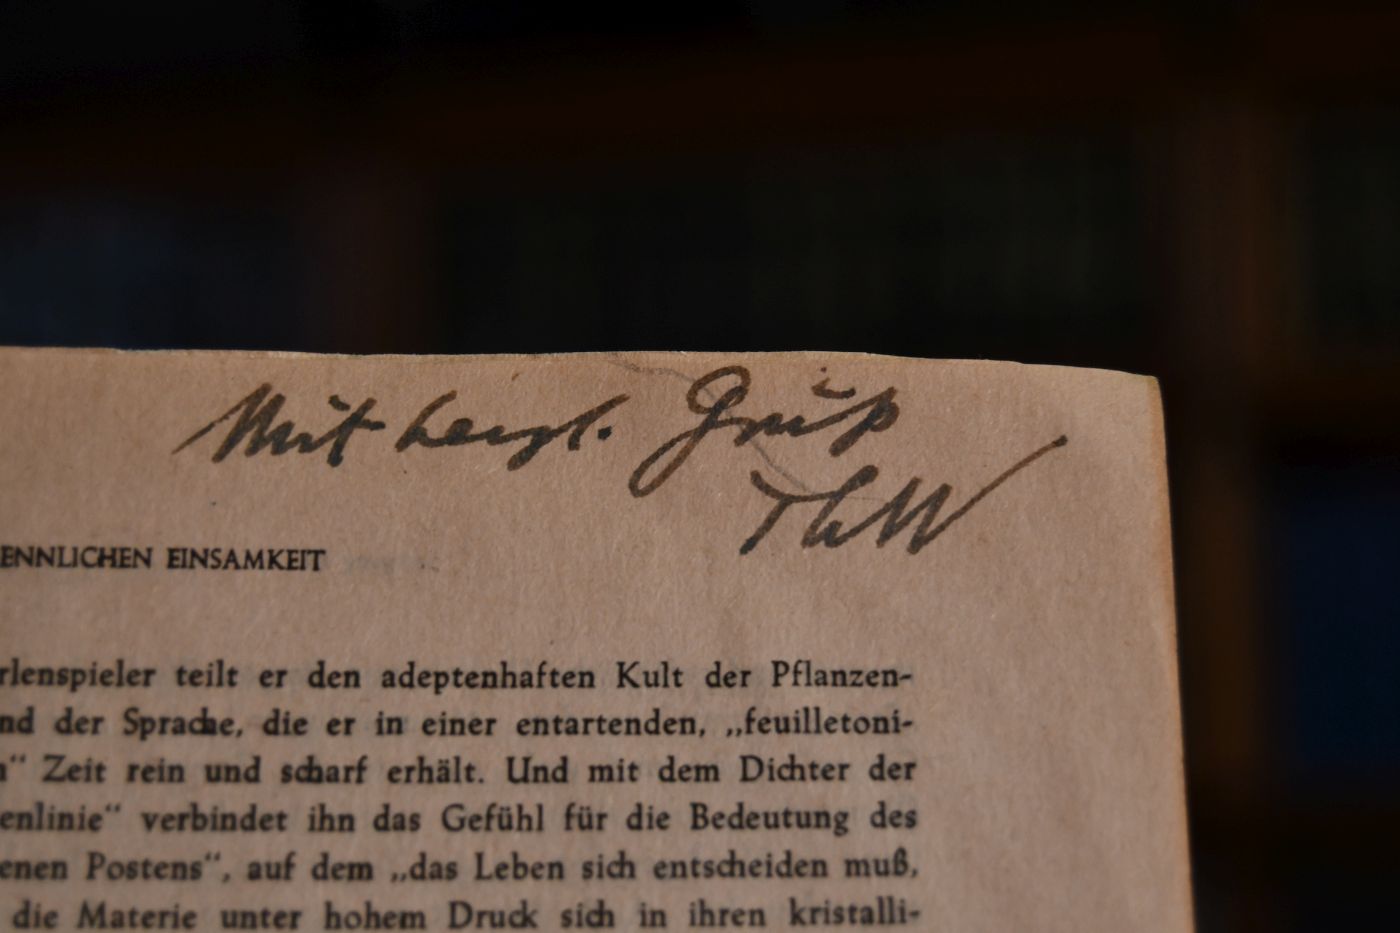 Mit herzl. Gruß
ThW
ENNLICHEN EINSAMKEIT
rlenspieler teilt er den adeptenhaften Kult der Pflanzen-
nd der Sprache, die er in einer entartenden, „feuilletoni-
n“ Zeit rein und scharf erhält. Und mit dem Dichter der
enlinie“ verbindet ihn das Gefühl für die Bedeutung des
enen Postens“, auf dem „das Leben sich entscheiden muß,
die Materie unter hohem Druck sich in ihren kristalli-